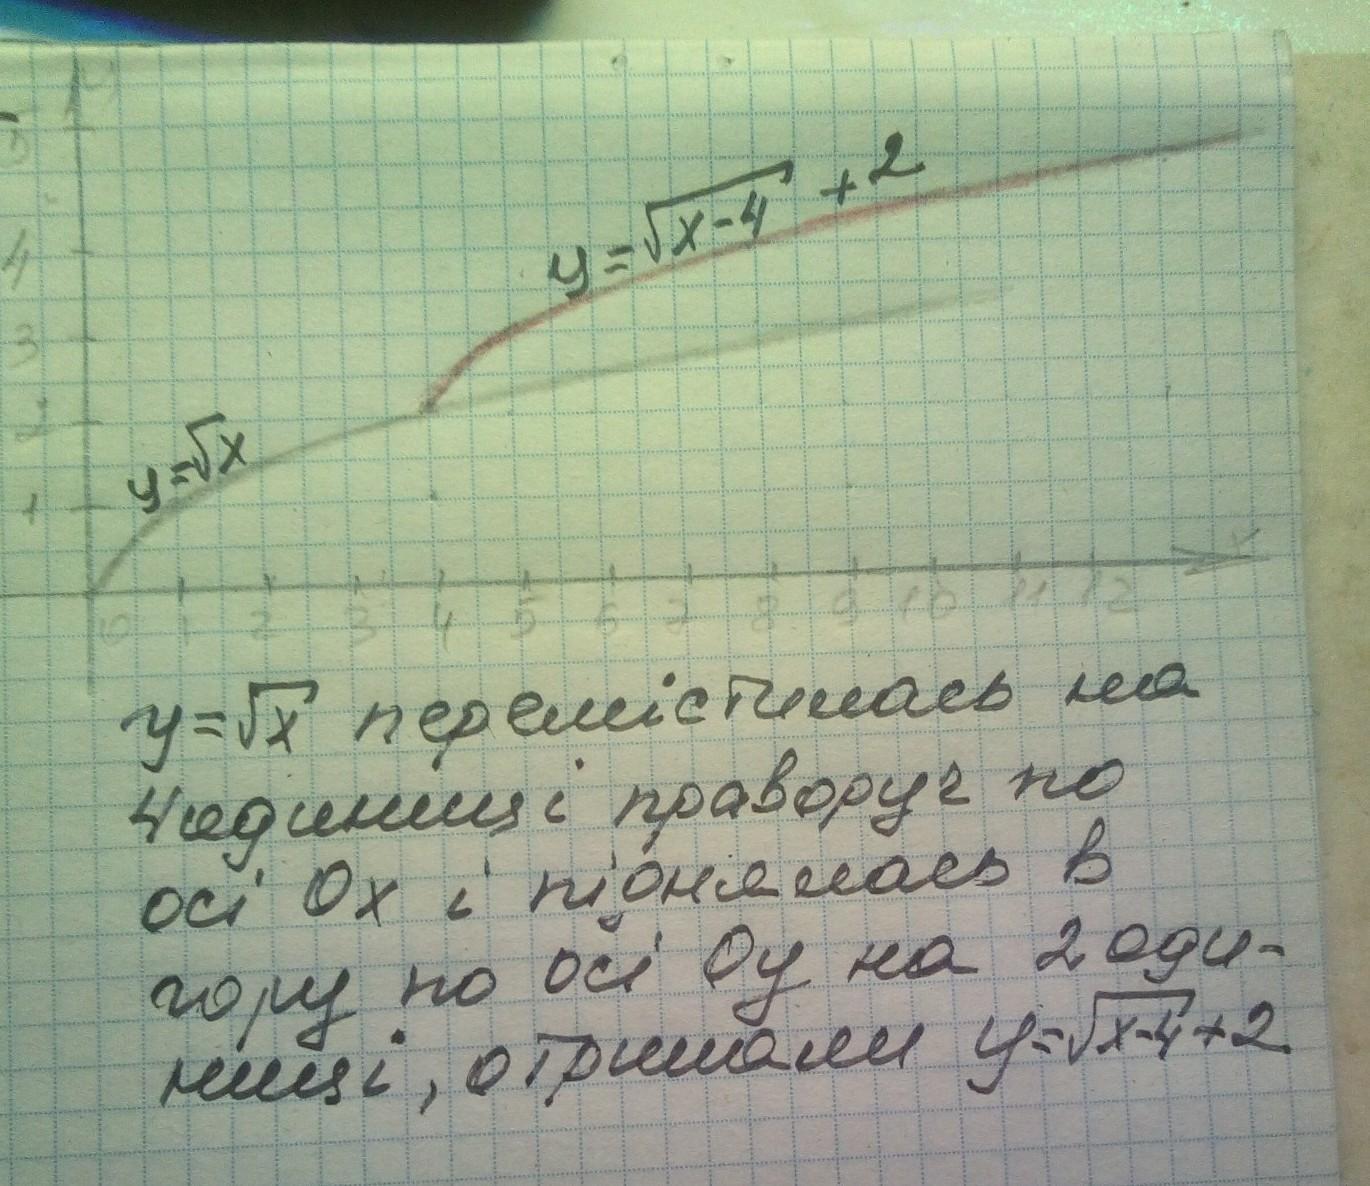 y
5
y=√x-4 +2
4
3
2
y=√x
1
x
0 1 2 3 4 5 6 7 8 9 10 11 12
y=√x перемістилась на
4 одиниці праворуч по
осі Ox і піднялась в
гору по осі Oy на 2 оди-
ниці, отримали y=√x-4+2